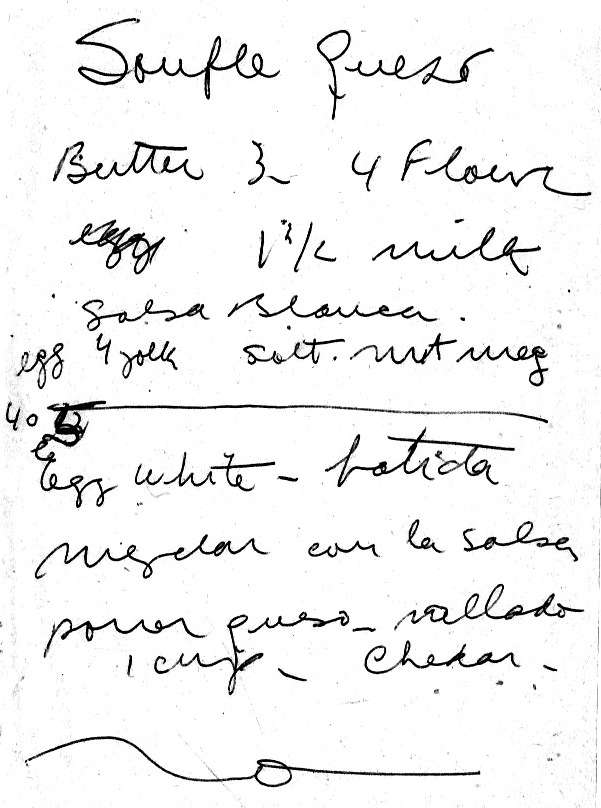 Soufle queso
Butter 3 - 4 Flour
egg 1 3/4 milk
salsa Blanca.
egg 4 yolk salt. nutmeg
4 o 5
egg white - batida
mezclar con la salsa
poner queso - rallado
1 cup -